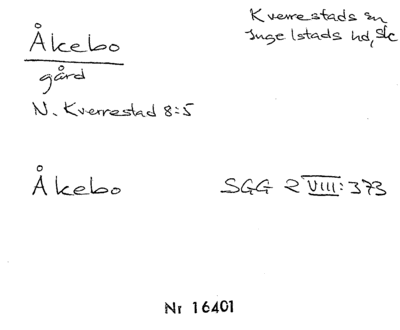 Åkebo
Kverrestads sn
Ingelstads hd, Sk
gård
N. Kverrestad 8:5
Åkebo SGG 2 VIII: 373
Nr 16401